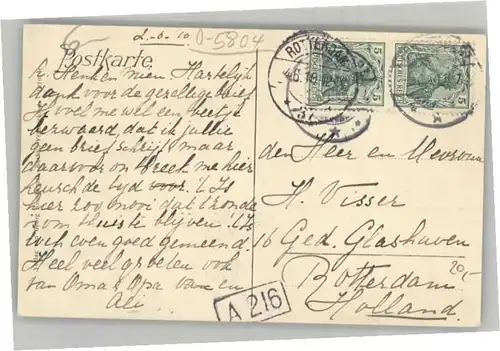 2-6-10
D-5804
Postkarte
L. Henken mien Hartelijk
dank voor de gezellige brief
Ik voel me wel een beetje
bezwaard, dat ik jullie
geen brief schrijf maar
daarvoor ontbreekt me hier
heusch de tijd voor. 't Is
hier zoo mooi dat 't zonde
is om thuis te blijven. 't Is
toch even goed gemeend.
Heel veel groeten ook
van Oma Opa van en
Ali.
A 216
ROTTERDAM
5
5
37
den Heer en Mevrouw
H. Visser
16 Ged. Glashaven
Rotterdam
20,-
Holland.